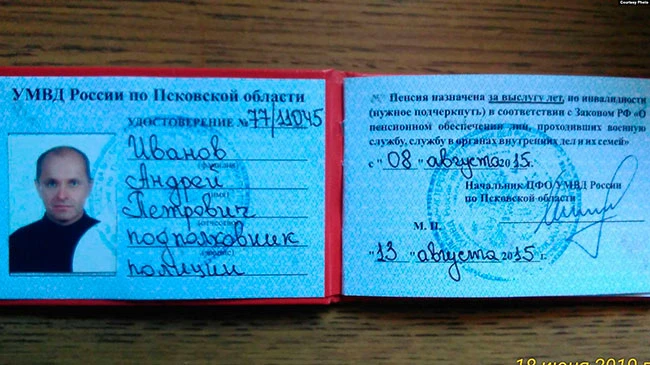 Courtesy Photo
УМВД России по Псковской области
УДОСТОВЕРЕНИЕ № 77/11045
Иванов
(фамилия)
Андрей
(имя)
Петрович
(отчество)
подполковник
полиции
Пенсия назначена за выслугу лет, по инвалидности
(нужное подчеркнуть) в соответствии с Законом РФ «О
пенсионном обеспечении лиц, проходивших военную
службу, службу в органах внутренних дел и их семей»
с "08" августа 2015г.
Начальник ЦФО УМВД России
по Псковской области
М. П.
"13" августа 2015 г.